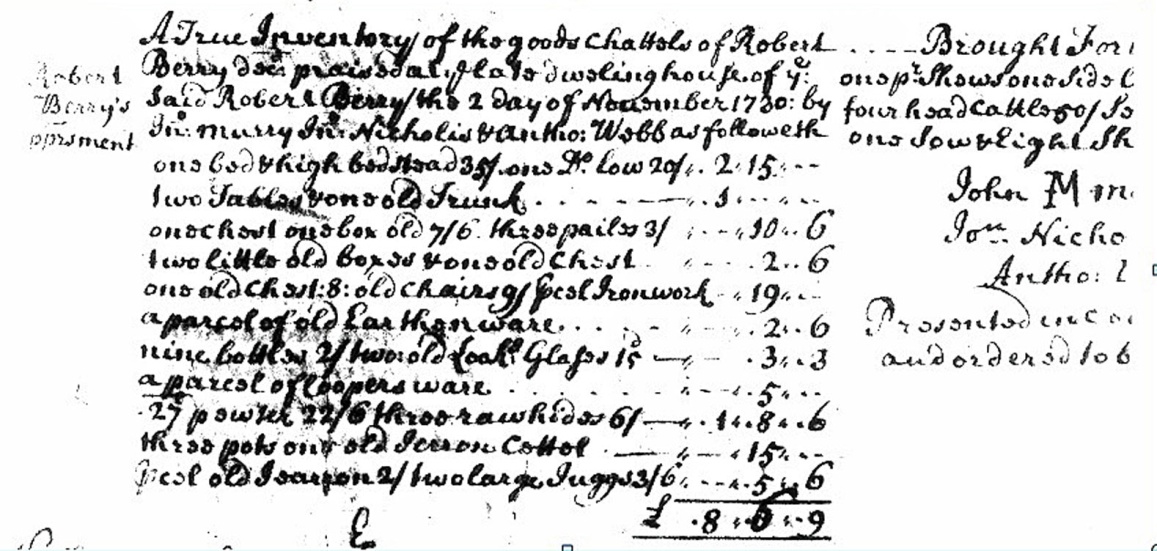 Robert
Berry's
pprsment
A True Inventory of the goods Chattels of Robert
Berry decd praised at ye late dwelinghouse of ye:
said Robert Berry the 2 day of November 1730: by
Jno: Murry Jno: Nicholis & Antho: Webb as followeth
one bed & high bedstead 35/ one Do. low 20/ . 2 " 15 " - -
two Tables & one old Trunk . . . . . - - " 1 " - -
one chest one box old 7/6 three pailes 3/ " - - " 10 " 6
two little old boxes & one old Chest " - - " 2 " 6
one old Chest: 8: old Chairs 9/ pcel Ironwork " 19 " - -
a parcel of old Earthenware . . . . " - - " 2 " 6
nine bottles 2/ two old Lookg Glasses 15d — " - . 3 " 3
a parcel of Coopers ware . . . . . " - - " 5 " - -
27lb pewter 22/6 three rawhides 6/ — " 1 " 8 " 6
three pots one old Ierron Cettel — " - " 15 " - -
pcel old Iearron 2/ two large Juggs 3/6 " - - " 5 " 6
£ . 8 " 6 " 9
- - - - Brought For
one pr. Shews one Side
four head Cattle 50/
one Sow & Eight Sh
John M
Jon Nicho
Antho:
Presented in
and ordered to